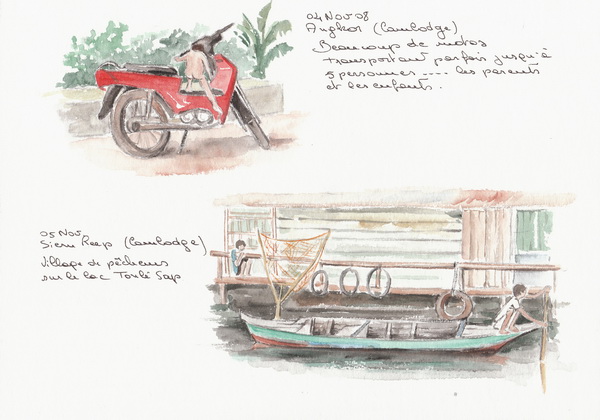 04 Nov 08
Angkor (Cambodge)
Beaucoup de motos
transportant parfois jusqu'à
5 personnes .... les parents
et les enfants.
05 Nov
Siem Reep (Cambodge)
Village de pêcheurs
sur le lac Tonlé Sap